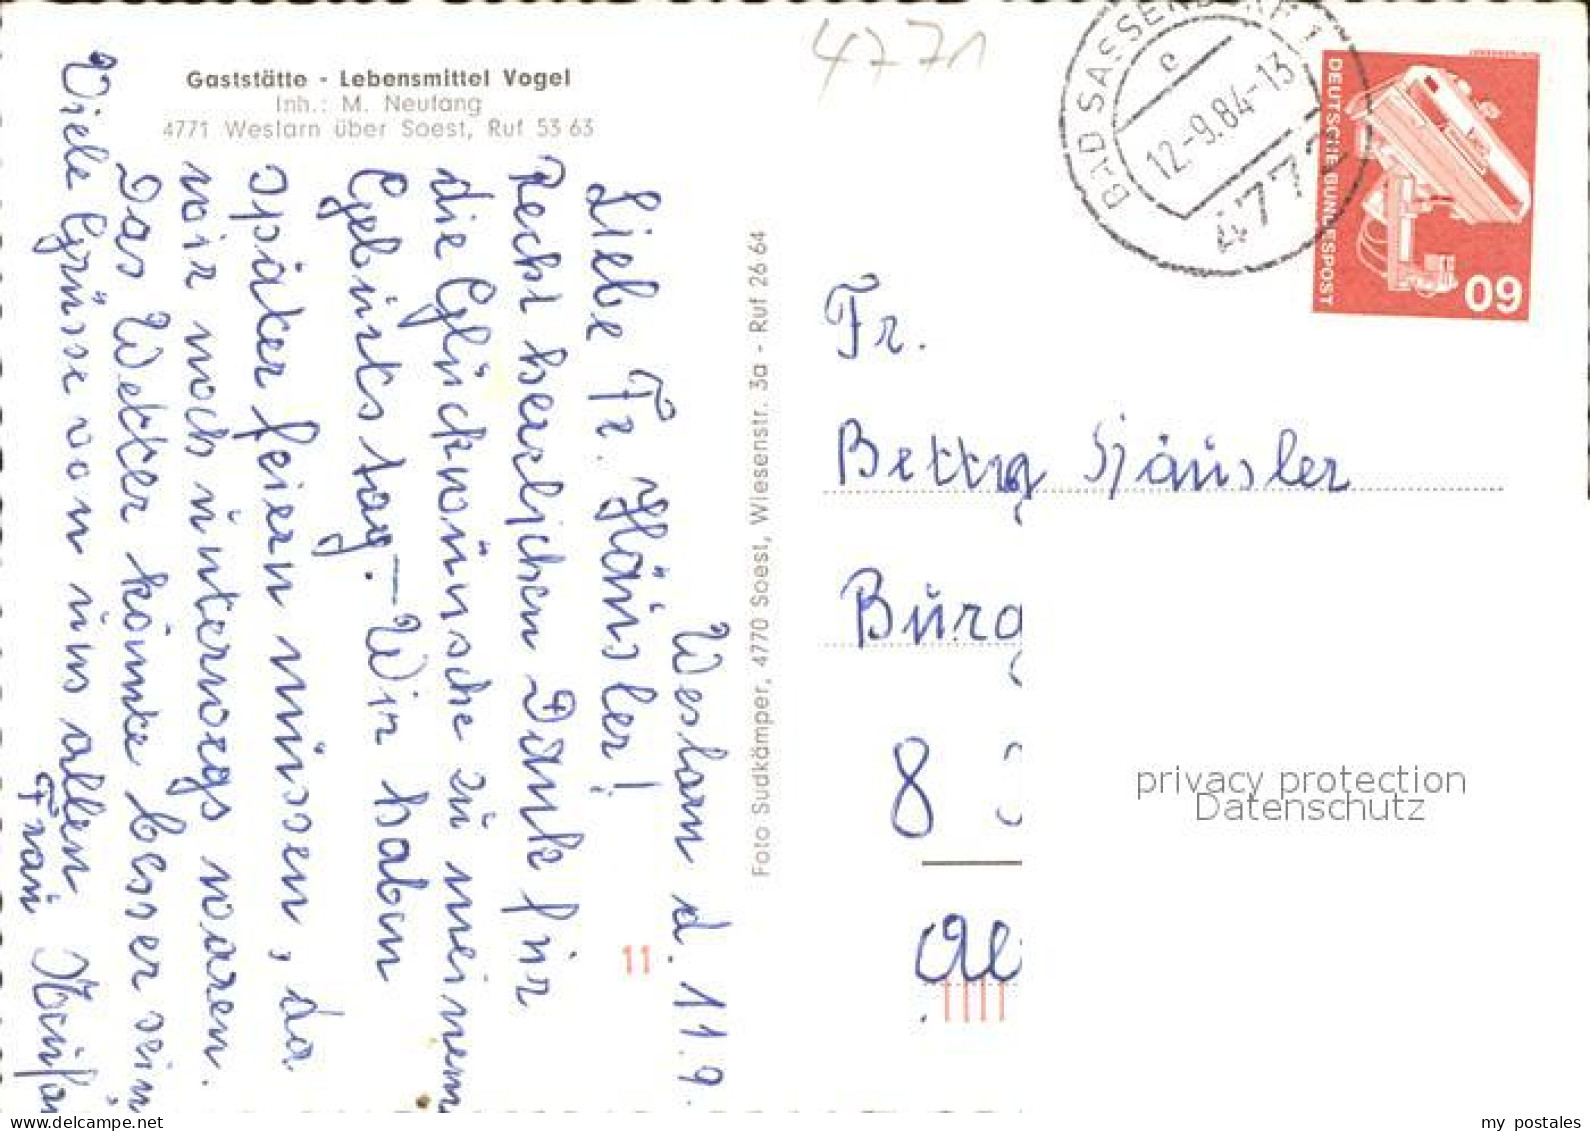 Gaststätte - Lebensmittel Vogel
Inh.: M. Neufang
4771 Weslarn über Soest, Ruf 53 63
4771
BAD SASSENDORF 1
e
12.-9.84-13
4772
DEUTSCHE BUNDESPOST
60
Weslarn d. 11.9.
Liebe Fr. Häusler!
Recht herzlichen Dank für
die Glückwünsche zu meinem
Geburtstag. – Wir haben
später feiern müssen, da
wir noch unterwegs waren.
Das Wetter könnte besser sein
Viele Grüsse von uns allen
Frau Neufan
Foto Sudkämper, 4770 Soest, Wiesenstr. 3a - Ruf 26 64
11
Fr.
Betty Häusler
Burg
8
privacy protection
Datenschutz
my postales